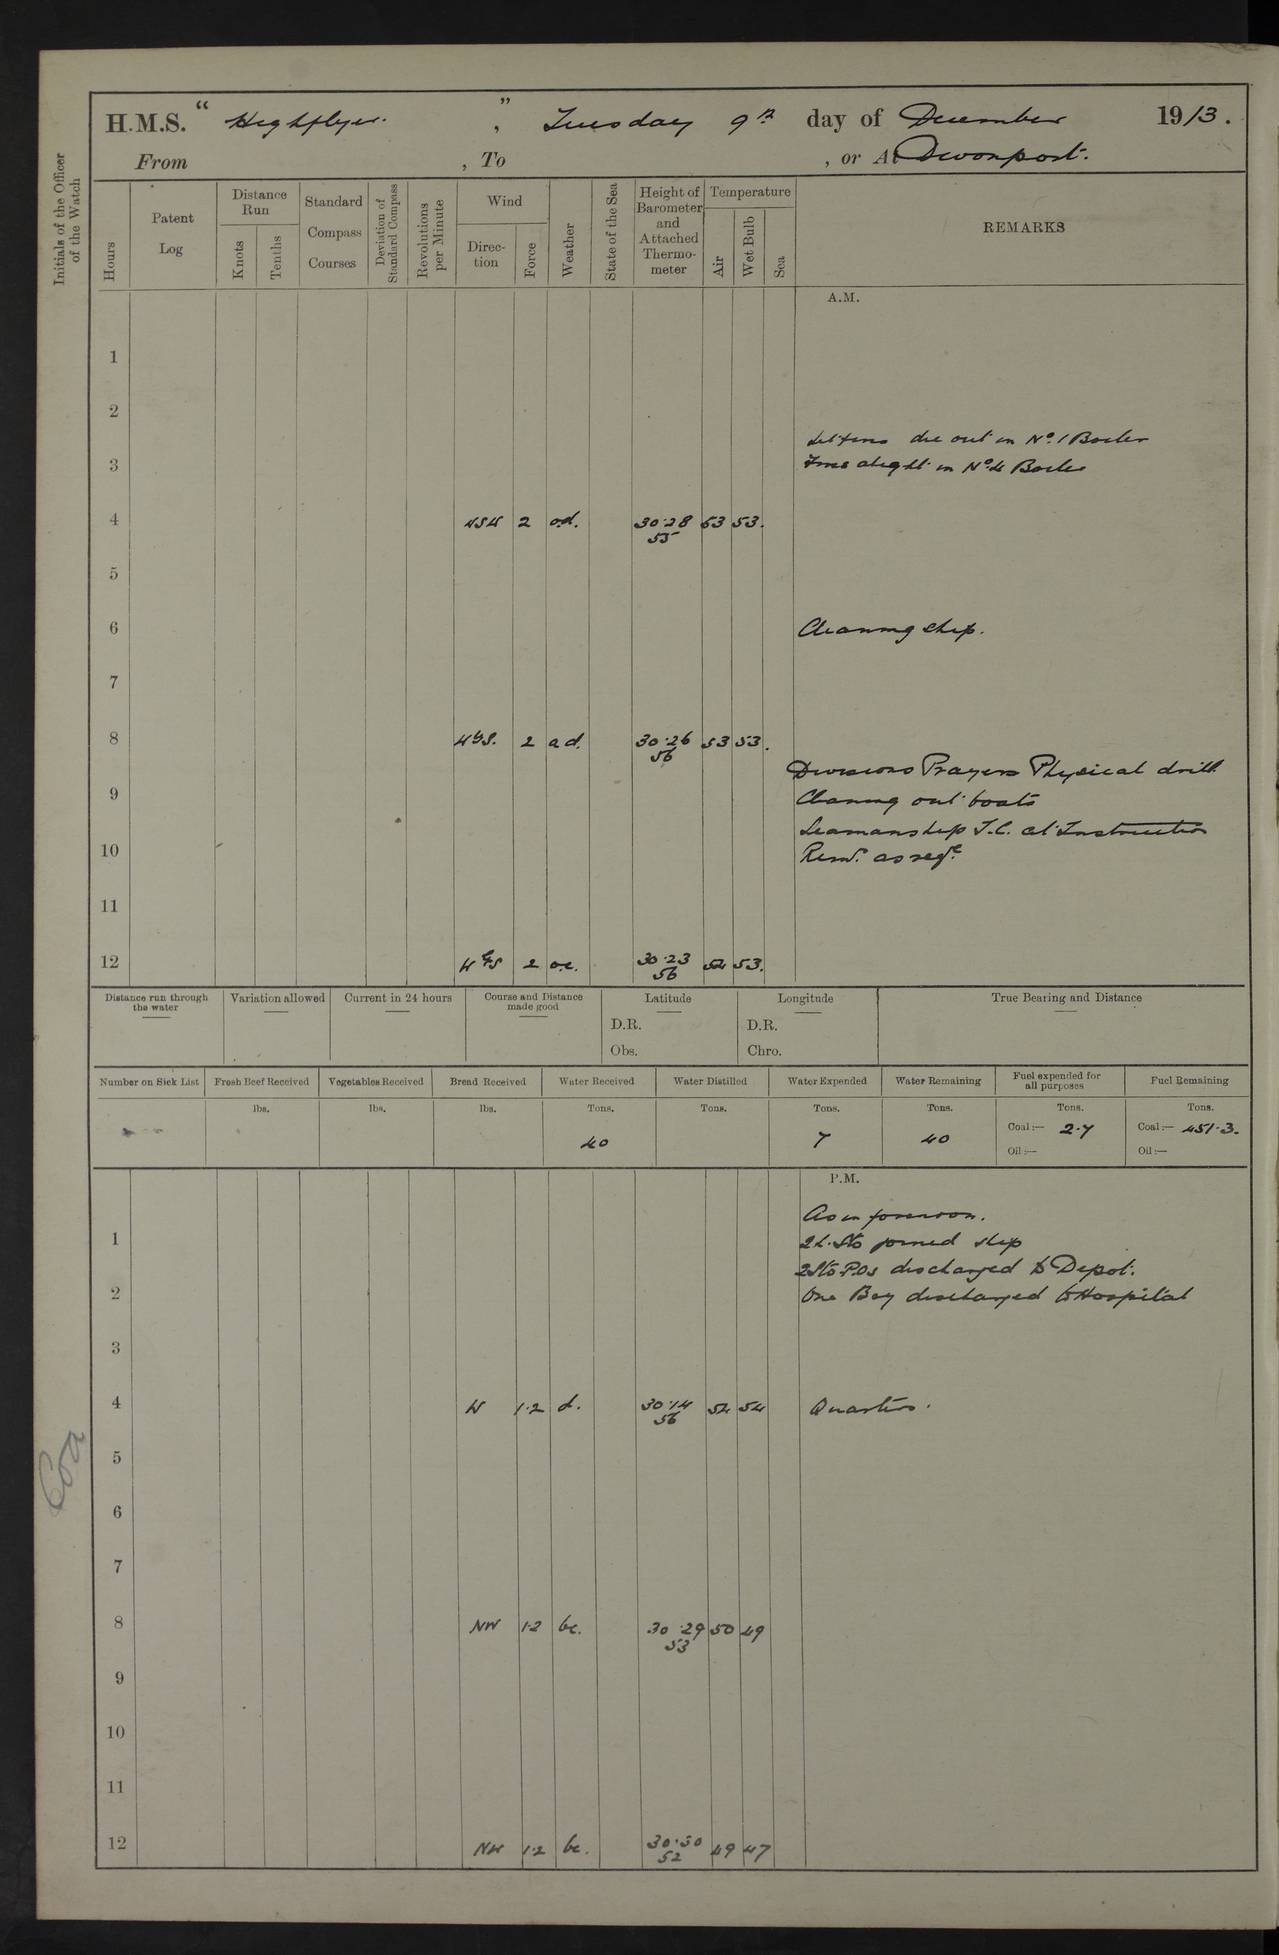 H.M.S. "Highflyer.", Tuesday 9th day of December 1913.
From , To , or At Devonport.
Initials of the Officer of the Watch
Hours
Patent Log
Distance Run
Knots
Tenths
Standard Compass Courses
Deviation of Standard Compass
Revolutions per Minute
Wind
Direction
Force
Weather
State of the Sea
Height of Barometer and Attached Thermometer
Temperature
Air
Wet Bulb
Sea
REMARKS
A.M.
1
2
die out in No. 1 Boiler
3
Fires alight in No. 4 Boiler
4 WSW 2 o.d. 30.28 53 53.
55
5
6 Cleaning ship.
7
8 WbS. 2 o.d. 30.26 53 53.
56
Divisions Prayers Physical drill
9 Cleaning out boats
Seamanship T.C. at Instruction
10 Remr. as reqe.
11
12 WbS 2 o.c. 30.23 54 53.
56
Distance run through the water
Variation allowed
Current in 24 hours
Course and Distance made good
Latitude
D.R.
Obs.
Longitude
D.R.
Chro.
True Bearing and Distance
Number on Sick List
Fresh Beef Received
lbs.
Vegetables Received
lbs.
Bread Received
lbs.
Water Received
Tons.
40
Water Distilled
Tons.
Water Expended
Tons.
7
Water Remaining
Tons.
40
Fuel expended for all purposes
Tons.
Coal:— 2.7
Oil:—
Fuel Remaining
Tons.
Coal:— 451.3.
Oil:—
P.M.
As in forenoon.
1 2 L. Sto joined ship
2 Sto P.Os discharged to Depot.
2 One Boy discharged to Hospital
3
4 W 1.2 d. 30.14 54 54 Quarters.
56
5
6
7
8 NW 1.2 bc. 30.29 50 49
53
9
10
11
12 NW 1.2 bc. 30.30 49 47
52
Coa